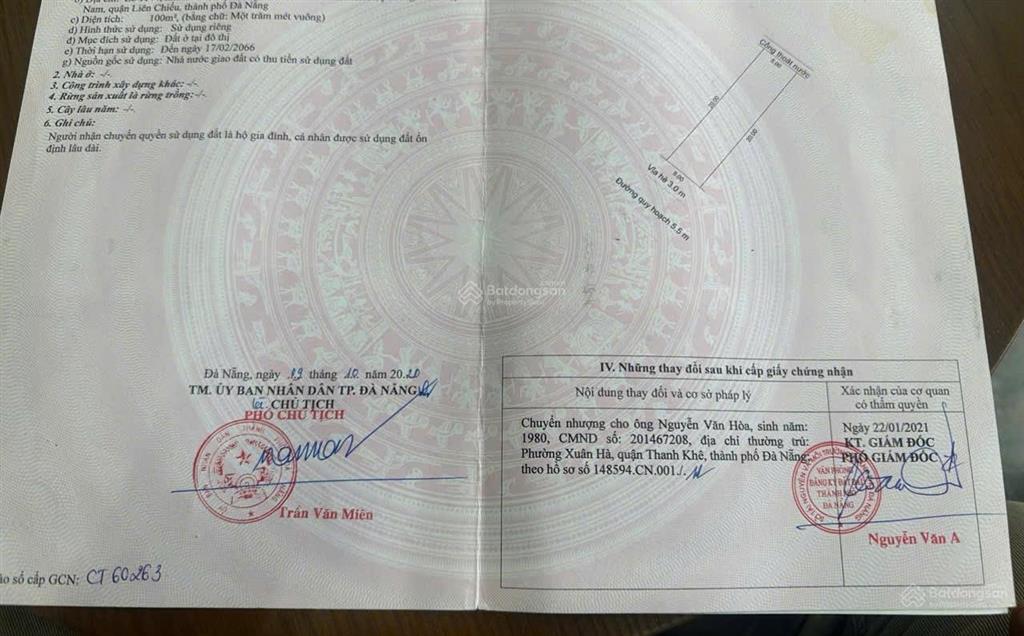 Nam, quận Liên Chiểu, thành phố Đà Nẵng
c) Diện tích: 100m², (bằng chữ: Một trăm mét vuông)
d) Hình thức sử dụng: Sử dụng riêng
đ) Mục đích sử dụng: Đất ở tại đô thị
e) Thời hạn sử dụng: Đến ngày 17/02/2066
g) Nguồn gốc sử dụng: Nhà nước giao đất có thu tiền sử dụng đất
2. Nhà ở: -/-
3. Công trình xây dựng khác: -/-
4. Rừng sản xuất là rừng trồng:-/-
5. Cây lâu năm: -/-
6. Ghi chú:
Người nhận chuyển quyền sử dụng đất là hộ gia đình, cá nhân được sử dụng đất ổn
định lâu dài.
Đà Nẵng, ngày 19 tháng 10 năm 2020
TM. ỦY BAN NHÂN DÂN TP. ĐÀ NẴNG
CHỦ TỊCH
PHÓ CHỦ TỊCH
Trần Văn Miên
số cấp GCN: CT 60263
Cống thoát nước
5.00
20.00
20.00
5.00
Vỉa hè 3.0 m
Đường quy hoạch 5.5 m
Batdongsan
by PropertyGuru
IV. Những thay đổi sau khi cấp giấy chứng nhận
Nội dung thay đổi và cơ sở pháp lý
Xác nhận của cơ quan
có thẩm quyền
Chuyển nhượng cho ông Nguyễn Văn Hòa, sinh năm:
1980, CMND số: 201467208, địa chỉ thường trú:
Phường Xuân Hà, quận Thanh Khê, thành phố Đà Nẵng,
theo hồ sơ số 148594.CN.001./.
Ngày 22/01/2021
KT. GIÁM ĐỐC
PHÓ GIÁM ĐỐC
VĂN PHÒNG
ĐĂNG KÝ ĐẤT ĐAI
THÀNH PHỐ
ĐÀ NẴNG
Nguyễn Văn A
Batdongsan
by PropertyGuru